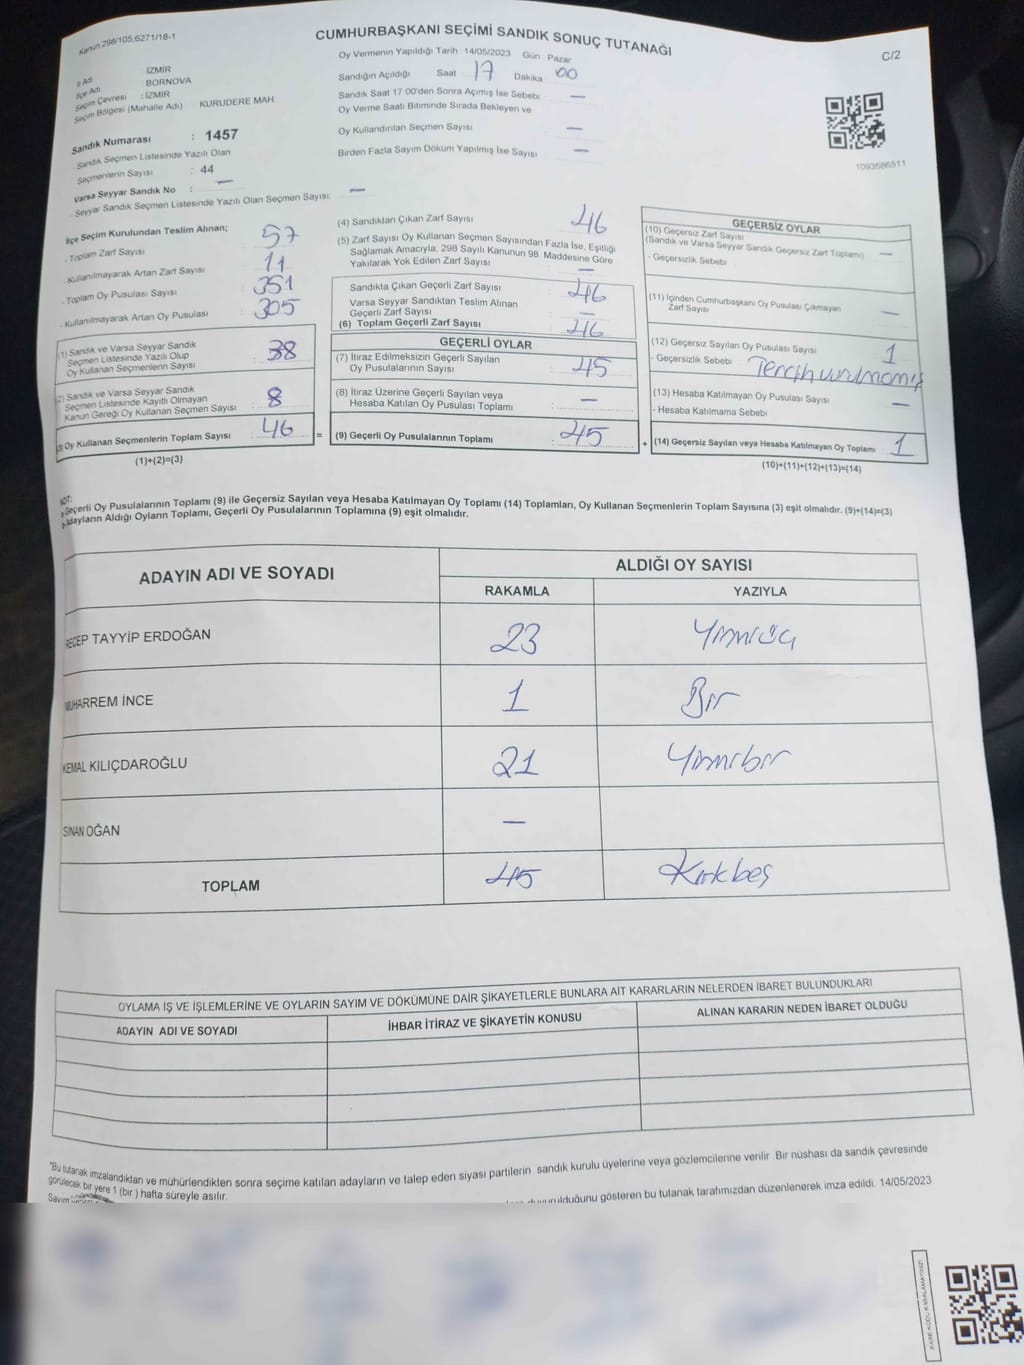 Kanun:298/105;6271/18-1
CUMHURBAŞKANI SEÇİMİ SANDIK SONUÇ TUTANAĞI
C/2
İl Adı : İZMİR
İlçe Adı : BORNOVA
Seçim Çevresi : İZMİR
Seçim Bölgesi (Mahalle Adı) KURUDERE MAH.
Sandık Numarası : 1457
Sandık Seçmen Listesinde Yazılı Olan
Seçmenlerin Sayısı : 44
Varsa Seyyar Sandık No : —
Seyyar Sandık Seçmen Listesinde Yazılı Olan Seçmen Sayısı: —
Oy Vermenin Yapıldığı Tarih 14/05/2023 Gün : Pazar
Sandığın Açıldığı Saat 17 Dakika 00
Sandık Saat 17 00'den Sonra Açımış İse Sebebi —
Oy Verme Saati Bitiminde Sırada Bekleyen ve
Oy Kullandırılan Seçmen Sayısı —
Birden Fazla Sayım Döküm Yapılmış İse Sayısı —
1093586511
İlçe Seçim Kurulundan Teslim Alınan;
- Toplam Zarf Sayısı : 57
- Kullanılmayarak Artan Zarf Sayısı : 11
- Toplam Oy Pusulası Sayısı : 351
- Kullanılmayarak Artan Oy Pusulası : 305
(1) Sandık ve Varsa Seyyar Sandık
Seçmen Listesinde Yazılı Olup
Oy Kullanan Seçmenlerin Sayısı : 38
(2) Sandık ve Varsa Seyyar Sandık
Seçmen Listesinde Kayıtlı Olmayan
Kanun Gereği Oy Kullanan Seçmen Sayısı : 8
(3) Oy Kullanan Seçmenlerin Toplam Sayısı : 46 =
(1)+(2)=(3)
(4) Sandıktan Çıkan Zarf Sayısı : 46
(5) Zarf Sayısı Oy Kullanan Seçmen Sayısından Fazla İse, Eşitliği
Sağlamak Amacıyla, 298 Sayılı Kanunun 98. Maddesine Göre
Yakılarak Yok Edilen Zarf Sayısı —
Sandıkta Çıkan Geçerli Zarf Sayısı : 46
Varsa Seyyar Sandıktan Teslim Alınan
Geçerli Zarf Sayısı : —
(6) Toplam Geçerli Zarf Sayısı : 46
GEÇERLİ OYLAR
(7) İtiraz Edilmeksizin Geçerli Sayılan
Oy Pusulalarının Sayısı : 45
(8) İtiraz Üzerine Geçerli Sayılan veya
Hesaba Katılan Oy Pusulası Toplamı : —
(9) Geçerli Oy Pusulalarının Toplamı : 45 +
GEÇERSİZ OYLAR
(10) Geçersiz Zarf Sayısı
(Sandık ve Varsa Seyyar Sandık Geçersiz Zarf Toplamı) —
- Geçersizlik Sebebi
(11) İçinden Cumhurbaşkanı Oy Pusulası Çıkmayan
Zarf Sayısı —
(12) Geçersiz Sayılan Oy Pusulası Sayısı 1
- Geçersizlik Sebebi Tercih vurulmamış
(13) Hesaba Katılmayan Oy Pusulası Sayısı —
- Hesaba Katılmama Sebebi
(14) Geçersiz Sayılan veya Hesaba Katılmayan Oy Toplamı 1
(10)+(11)+(12)+(13)=(14)
NOT:
Geçerli Oy Pusulalarının Toplamı (9) ile Geçersiz Sayılan veya Hesaba Katılmayan Oy Toplamı (14) Toplamları, Oy Kullanan Seçmenlerin Toplam Sayısına (3) eşit olmalıdır. (9)+(14)=(3)
Adayların Aldığı Oyların Toplamı, Geçerli Oy Pusulalarının Toplamına (9) eşit olmalıdır.
ADAYIN ADI VE SOYADI ALDIĞI OY SAYISI
RAKAMLA YAZIYLA
RECEP TAYYİP ERDOĞAN 23 Yirmiüç
MUHARREM İNCE 1 Bir
KEMAL KILIÇDAROĞLU 21 Yirmibir
SİNAN OĞAN —
TOPLAM 45 Kırkbeş
OYLAMA İŞ VE İŞLEMLERİNE VE OYLARIN SAYIM VE DÖKÜMÜNE DAİR ŞİKAYETLERLE BUNLARA AİT KARARLARIN NELERDEN İBARET BULUNDUKLARI
ADAYIN ADI VE SOYADI İHBAR İTİRAZ VE ŞİKAYETİN KONUSU ALINAN KARARIN NEDEN İBARET OLDUĞU
"Bu tutanak imzalandıktan ve mühürlendikten sonra seçime katılan adayların ve talep eden siyasi partilerin sandık kurulu üyelerine veya gözlemcilerine verilir Bir nüshası da sandık çevresinde
görülecek bir yere 1 (bir ) hafta süreyle asılır.
duyurulduğunu gösteren bu tutanak tarafımızdan düzenlenerek imza edildi. 14/05/2023